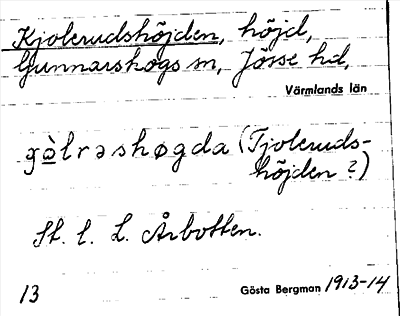 Kjolerudshöjden, höjd,
Gunnarskogs sn, Jösse hd,
Värmlands län
(Tjoleruds-
höjden?)
St. l. L. Årbotten.
13 Gösta Bergman 1913-14